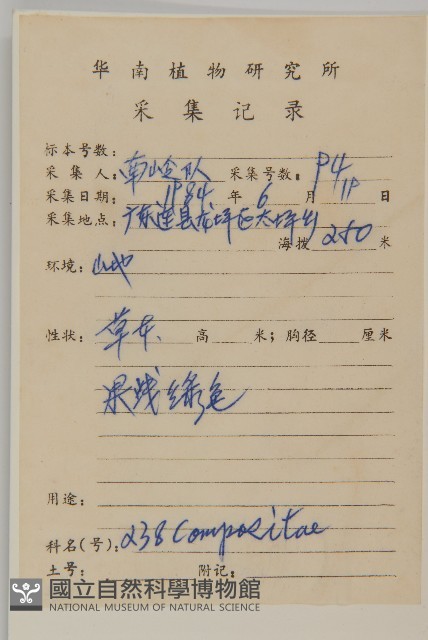 华南植物研究所
采集记录
标本号数:
采集人: 南岭仝队 采集号数: P4
采集日期: 1984 年 6 月 19 日
采集地点: 广东连县龙坪区大坪乡
海拨 250 米
环境: 山地
性状: 草本 高 米; 胸径 厘米
果浅绿色
用途:
科名(号): 238 Compositae
土号: 附记:
國立自然科學博物館
NATIONAL MUSEUM OF NATURAL SCIENCE